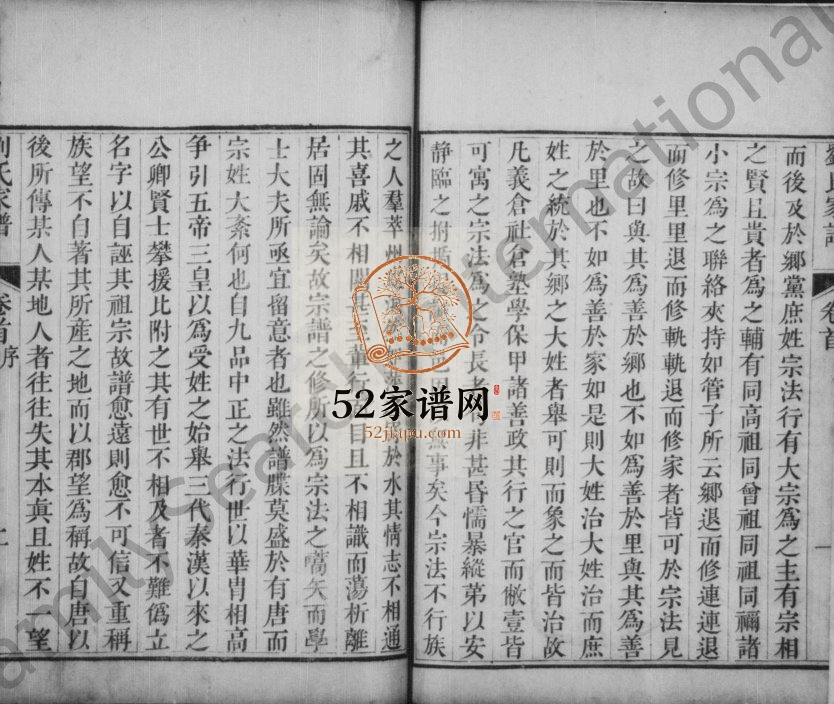 而後及於鄉黨庶姓宗法行有大宗爲之主有宗相
之賢且貴者爲之輔有同高祖同曾祖同祖同禰諸
小宗爲之聯絡夾持如管子所云鄉退而修連連退
而修里里退而修軌軌退而修家者皆可於宗法見
之故曰與其爲善於鄉也不如爲善於里與其爲善
於里也不如爲善於家如是則大姓治大姓治而庶
姓之統於其鄉之大姓者舉可則而象之而皆治故
凡義倉社倉塾學保甲諸善政其行之官而敝壹皆
可寓之宗法爲之令長者非甚昏懦暴縱弟以安
靜臨之拊循無事矣今宗法不行族
之人羣萃州於水其情志不相通
其喜戚不相聞甚至輩行目且不相識而蕩析離
居固無論矣故宗譜之修所以爲宗法之蒿矢而學
士大夫所亟宜留意者也雖然譜牒莫盛於有唐而
宗姓大紊何也自九品中正之法行世以華胄相高
爭引五帝三皇以爲受姓之始舉三代秦漢以來之
公卿賢士攀援比附之其有世不相及者不難僞立
名字以自誣其祖宗故譜愈遠則愈不可信又重稱
族望不自著其所產之地而以郡望爲稱故自唐以
後所傳某人某地人者往往失其本眞且姓不一望
劉氏家譜 卷首 序
52家譜网
52jiapu.com
FamilySearch International